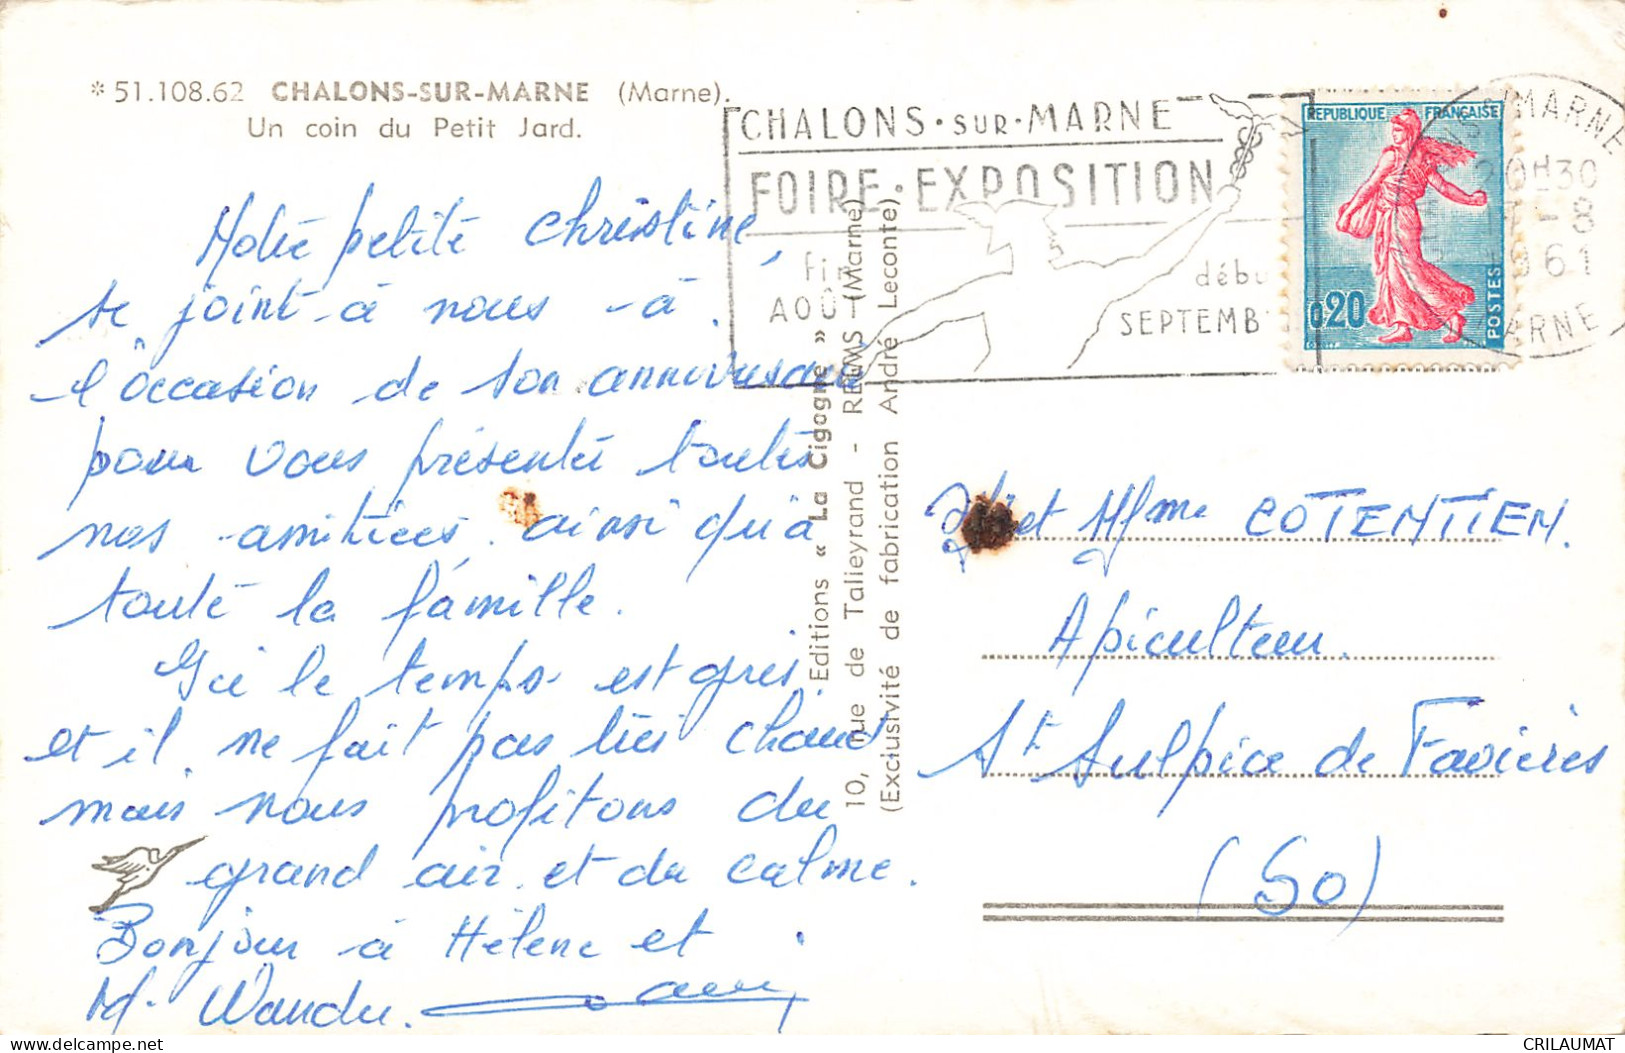 * 51.108.62 CHALONS-SUR-MARNE (Marne).
Un coin du Petit Jard.
Notre petite Christine,
se joint à nous à
l'occasion de son anniversaire
pour vous présenter toutes
nos amitiées ainsi qu'à
toute la famille.
Ici le temps est gris.
et il ne fait pas très chaud
mais nous profitons du
grand air et du calme.
Bonjour à Hélène et
Mr
Editions « La Cigogne »
10, rue de Talleyrand - REIMS (Marne)
(Exclusivité de fabrication André Leconte)
CHALONS·SUR·MARNE
FOIRE·EXPOSITION
fin
AOÛT
débu
SEPTEMB
REPUBLIQUE FRANÇAISE
0,20
POSTES
NS S MARNE
20H30
8
1961
MARNE
et Mme COTENTIEN.
Apiculteur.
St Sulpice de Favières
(SO)
CRILAUMAT